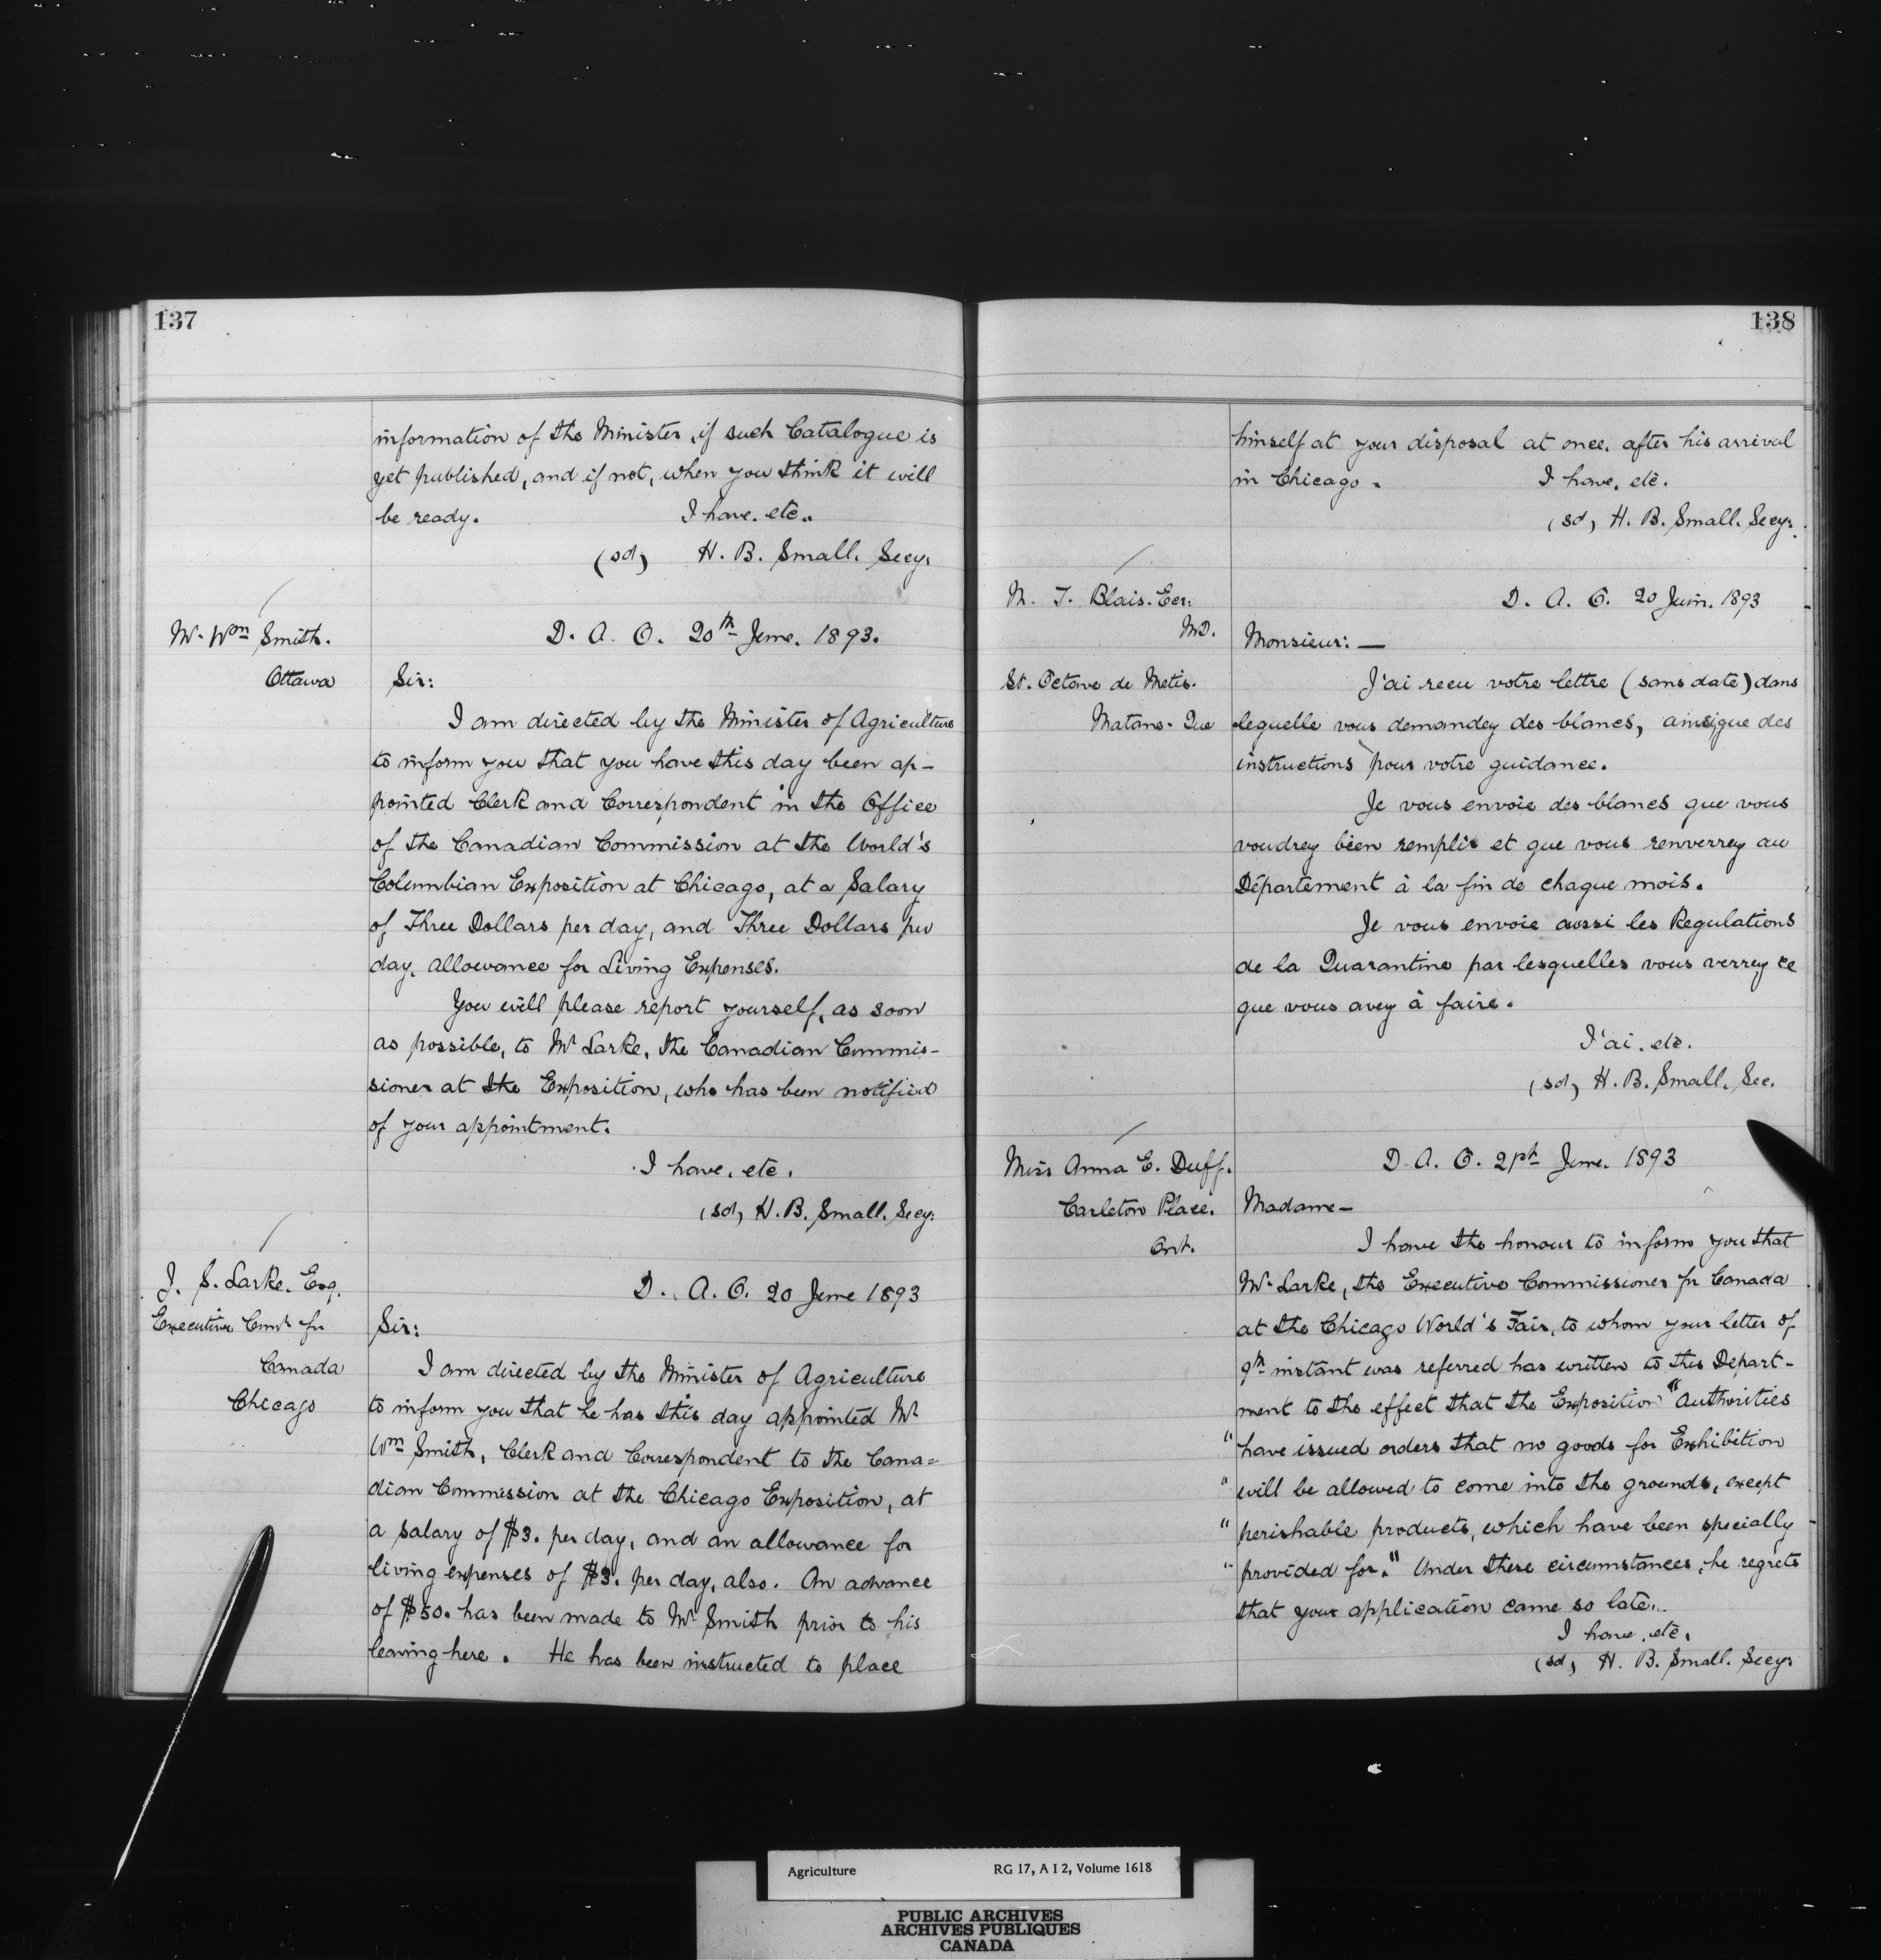 137
information of the Minister, if such Catalogue is
yet published, and if not, when you think it will
be ready. I have. etc..
(sd) H. B. Small. Secy.
Mr. Wm Smith.
Ottawa
D. A. O. 20th June. 1893.
Sir:
I am directed by the Minister of Agriculture
to inform you that you have this day been ap-
pointed Clerk and Correspondent in the Office
of the Canadian Commission at the World's
Columbian Exposition at Chicago, at a Salary
of Three Dollars per day, and Three Dollars per
day, allowance for Living Expenses.
You will please report yourself, as soon
as possible, to Mr Larke, the Canadian Commis-
sioner at the Exposition, who has been notified
of your appointment.
I have. etc.
(sd) H. B. Small. Secy.
J. S. Larke. Esq.
Executive Comr for
Canada
Chicago
D. A. O. 20 June 1893
Sir:
I am directed by the Minister of Agriculture
to inform you that he has this day appointed Mr
Wm Smith, Clerk and Correspondent to the Cana=
dian Commission at the Chicago Exposition, at
a salary of $3. per day, and an allowance for
living expenses of $3. per day, also. An advance
of $50. has been made to Mr Smith prior to his
leaving here. He has been instructed to place
138
himself at your disposal at once. after his arrival
in Chicago. I have. etc.
(sd) H. B. Small. Secy.
M. J. Blais. Ecr.
MD.
St. Octave de Metis.
Matane. Que
D. A. O. 20 Juin. 1893
Monsieur: —
J'ai recu votre lettre (sans date) dans
lequelle vous demandez des blancs, ainsique des
instructions pour votre guidance.
Je vous envoie des blancs que vous
voudrez bien remplir et que vous renverrez au
Département à la fin de chaque mois.
Je vous envoie aussi les Regulations
de la Quarantine par lesquelles vous verrez ce
que vous avez à faire.
J'ai. etc.
(sd) H. B. Small. Sec.
Miss Anna E. Duff.
Carleton Place.
Ont.
D. A. O. 21st June. 1893
Madame—
I have the honour to inform you that
Mr. Larke, the Executive Commissioner for Canada
at the Chicago World's Fair, to whom your letter of
9th instant was referred has written to this Depart-
ment to the effect that the Exposition "Authorities
"have issued orders that no goods for Exhibition
"will be allowed to come into the grounds, except
"perishable products, which have been specially
"provided for." Under these circumstances, he regrets
that your application came so late..
I have. etc.
(sd) H. B. Small. Secy.
Agriculture RG 17, A I 2, Volume 1618
PUBLIC ARCHIVES
ARCHIVES PUBLIQUES
CANADA